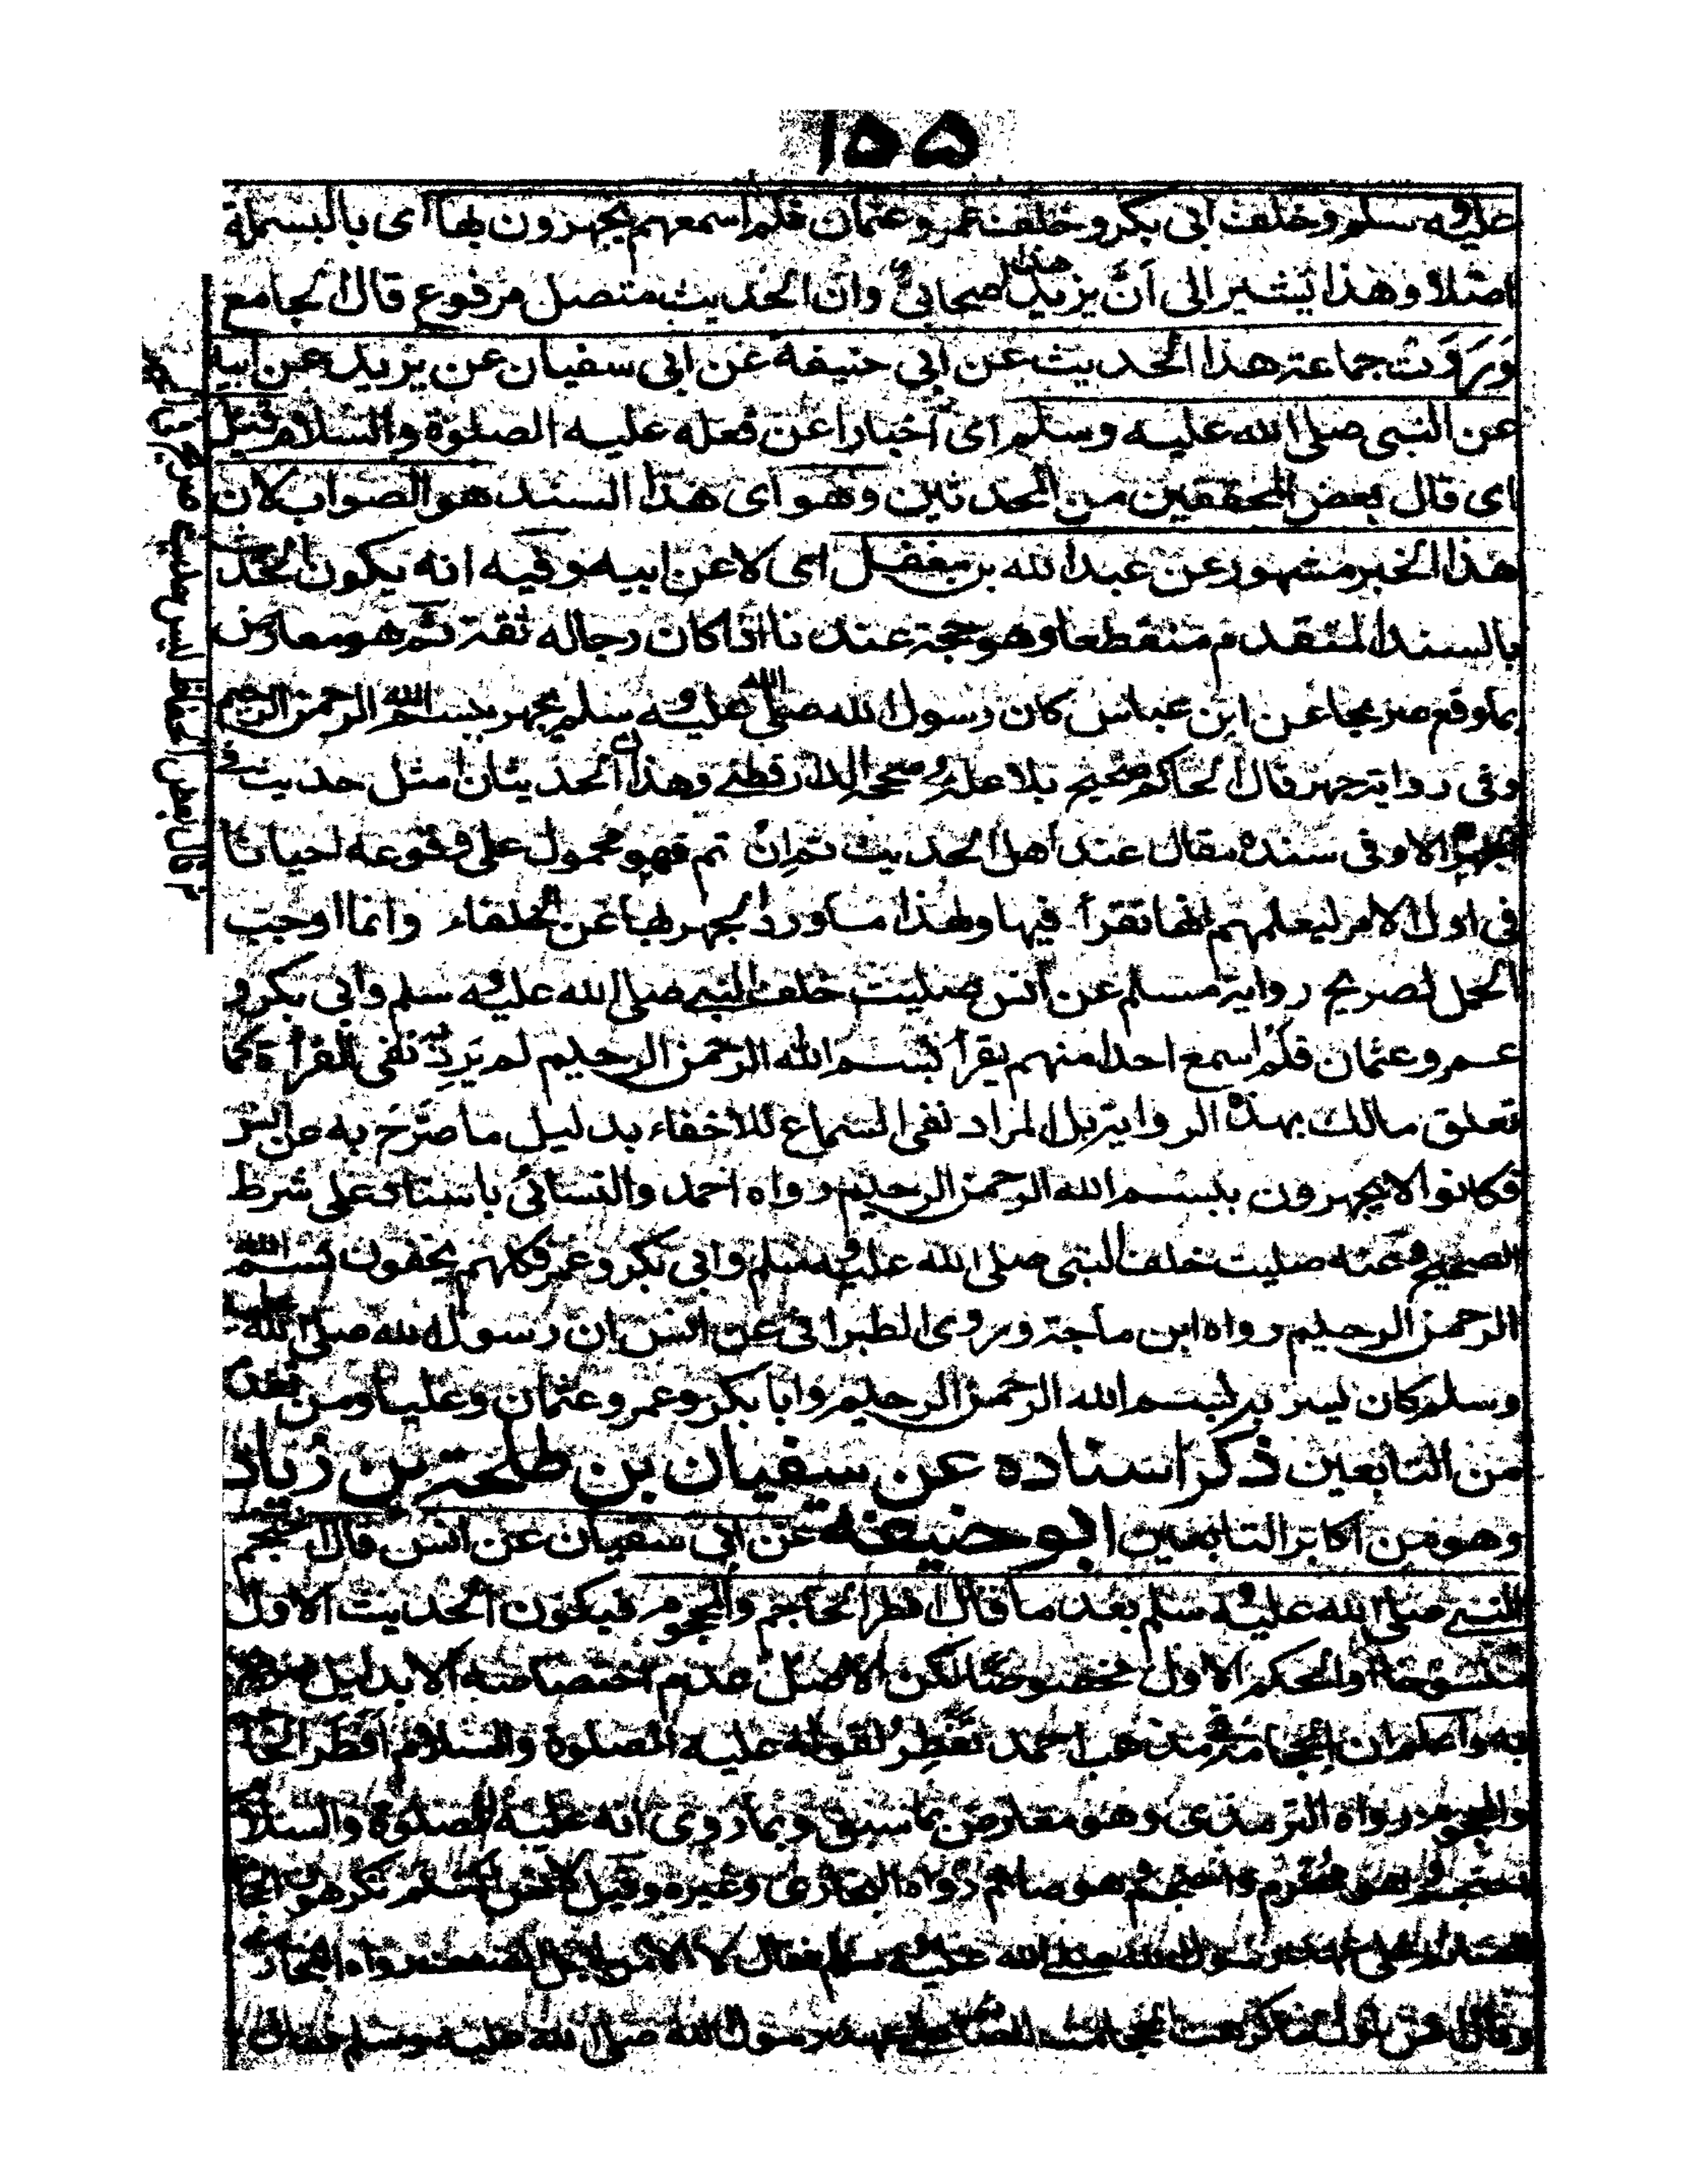 ١٥٥
عليه وسلم وخلف ابي بكر وخلف عمر وعثمان فلم اسمعهم يجهرون بها اى بالبسملة
اصلا وهذا يشير الى اَنَّ يزيد هذا صحابيٌّ وان الحديث متصل مرفوع قال الجامع
وَرَوَتْ جماعة هذا الحديث عن ابي حنيفة عن ابى سفيان عن يزيد عن ابيه
عن النبى صلى الله عليه وسلم اى اخبارا عن فعله عليه الصلوة والسلام قيل
اى قال بعض المحققين من المحدثين وهو اى هذا السند هو الصواب لان
هذا الخبر مشهور عن عبد الله بن مغفل اى لا عن ابيه وفيه انه يكون الحديث
بالسند المتقدم منقطعا وهو حجة عندنا اذا كان رجاله ثقة ثم هو معارض
بما وقع صريحا عن ابن عباس كان رسول الله صلى الله عليه وسلم يجهر ببسم الله الرحمن الرحيم
وفى رواية جهر قال الحاكم صحيح بلا علة وصححه الدارقطنى وهذان الحديثان امثل حديث فى
الجهر الا وفى سنده مقال عند اهل الحديث ثم اِنْ تم فهو محمول على وقوعه احيانا
فى اول الامر ليعلمهم انها تقرأ فيها ولهذا ما ورد الجهر بها عن الخلفاء وانما اوجب
الحمل لصريح رواية مسلم عن انس صليت خلف النبى صلى الله عليه وسلم وابى بكر و
عمر وعثمان فلم اسمع احدا منهم يقرأ بسم الله الرحمن الرحيم لم يَرِدْ نفى القرأة كما
تعلق مالك بهذه الرواية بل المراد نفى السماع للاخفاء بدليل ما صَرّحَ به عن انس
فكانوا لا يجهرون ببسم الله الرحمن الرحيم رواه احمد والنسائى باسناد على شرط
الصحيح وعنه صليت خلف النبى صلى الله عليه وسلم وابى بكر وعمر فكلهم يخفون بسم الله
الرحمن الرحيم رواه ابن ماجة وروى الطبرانى عن انس ان رسول الله صلى الله عليه
وسلم كان يسر ببسم الله الرحمن الرحيم وابا بكر وعمر وعثمان وعليا ومن تقدم
من التابعين ذكر اسناده عن سفيان بن طلحة بن زياد
وهو من اكابر التابعين ابو حنيفة عن ابى سفيان عن انس قال احتجم
النبى صلى الله عليه وسلم بعد ما قال افطر الحاجم والمحجوم فيكون الحديث الاول
منسوخا او الحكم الاول مخصوصا لكن الاصل عدم اختصاصه الا بدليل
به واعلم ان الحجامة فى مذهب احمد تفطر لقوله عليه الصلوة والسلام افطر الحاجم
والمحجوم رواه الترمذى وهو معارض بما سبق وبما روى انه عليه الصلوة والسلام
احتجم وهو محرم واحتجم وهو صائم رواه البخارى وغيره وقيل لانس اكنتم تكرهون الحجامة
للصائم على عهد رسول الله صلى الله عليه وسلم فقال لا الا من اجل الضعف رواه البخارى
وقال عن الحجامة للصائم على عهد رسول الله صلى الله عليه وسلم فقال
ثم قال بعض الحفاظ ليس